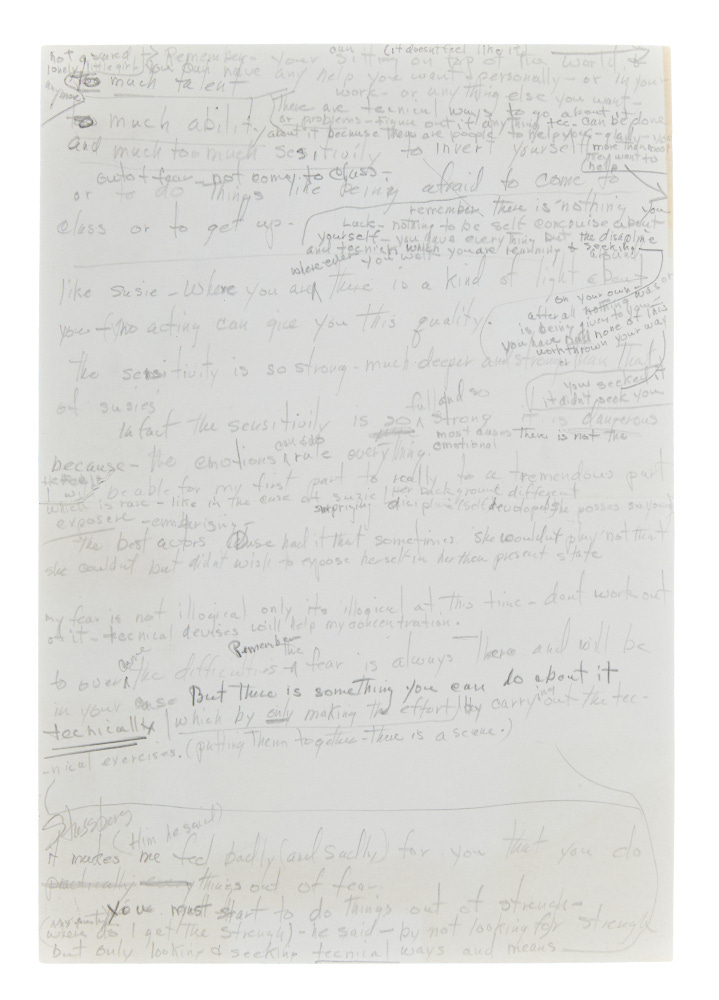 not scared
lonely
anymore
Remember - your sitting on top of the world
own (it doesn't feel like it)
You can have any help you want - personally - or in your
work - or anything else you want -
too much talent
There are tecnical ways to go about it
or problems - figure out if anything tec- can be done
too much ability
about it because there are people to help you - gladly -
more than most
they want to
help
and much too much sesitivity to invert yourself
out of fear - not coming to class -
or to do things like being afraid to come to
class or to get up -
remember there is nothing you
lack - nothing to be self conscious about
yourself - you have everything but the discipline
and technick which you are learning & seeking
on your own -
after all nothing was or
is being given to you -
you have had none of this
work thrown your way
you seeked it
it didn't seek you
where ever you well
like Susie - Where you are there is a kind of light about
around
you - (no acting can give you this quality.
The sensitivity is so strong - much deeper and stronger than that
of susies
full and so
Infact the sensitivity is so strong it is dangerous
most cases There is not the
emotional
because - the emotions can rule everything.
I will be able for my first part to really to a tremendous part
which is rare - like in the case of suzie (her background different
surprising disciplin (self) developed she posses so young
exposure - comprising -
The best actors Duse had it that sometimes she wouldnt play not that
she couldnt but didn't wish to expose herself in her then present state
my fear is not illogical only its illogical at this time - dont work out
on it - tecnical devises will help my concentration.
Remember
to overcome the difficulties the fear is always There and will be
in your case But there is something you can do about it
tecnically (which by only making the effort) by carrying out the tec-
-nical exercises. (putting Them together - there is a scene.)
Strassberg
(Him he said)
It makes me feel badly (and sadly) for you that you do
practically every things out of fear.
You must start to do things out of strength -
where do I get (the strength) - he said - by not looking for strength
but only looking & seeking tecnical ways and means